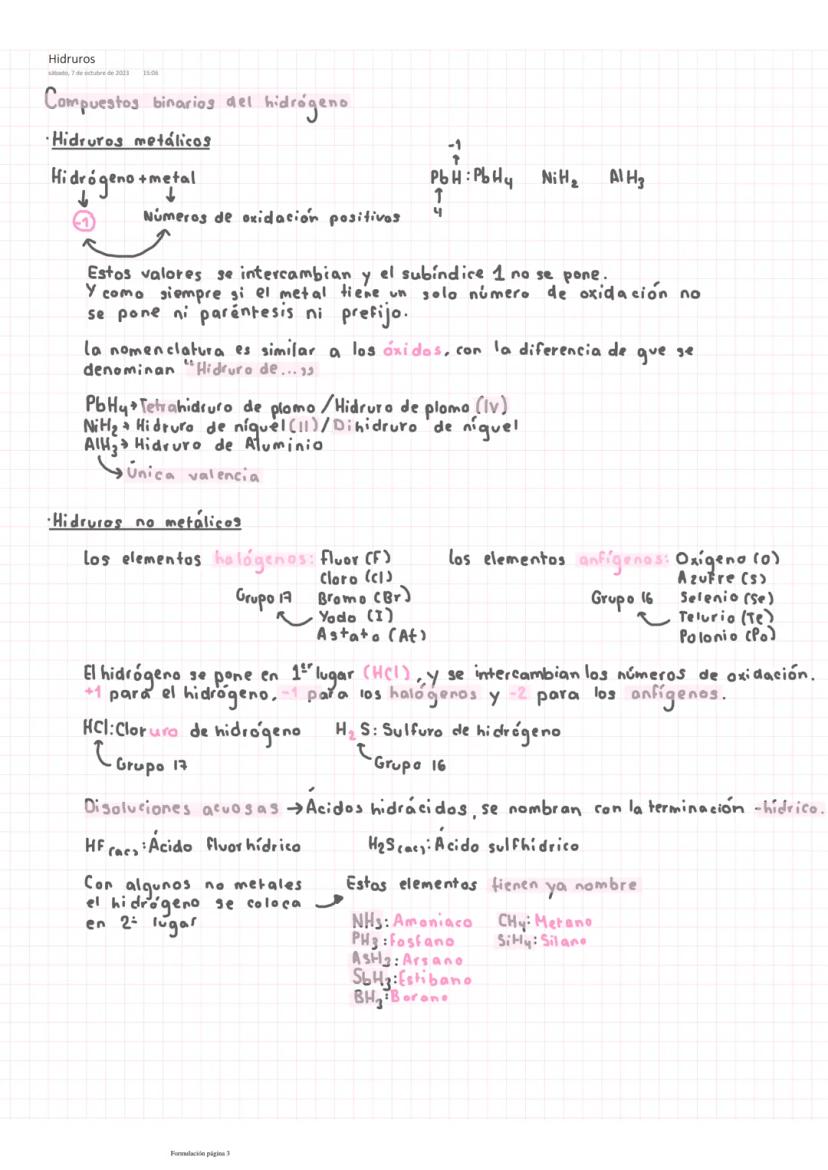 Hidruros
sábado, 7 de octubre de 2023 15:06
Compuestos binarios del hidrógeno
·Hidruros metálicos
-1
Hidrógeno + metal
PbH : PbH4 NiH2 AlH3
-1 Números de oxidación positivos
4
Estos valores se intercambian y el subíndice 1 no se pone.
Y como siempre si el metal tiene un solo número de oxidación no
se pone ni paréntesis ni prefijo.
la nomenclatura es similar a los óxidos, con la diferencia de que se
denominan "Hidruro de..."
PbH4→Tetrahidruro de plomo / Hidruro de plomo (IV)
NiH2→Hidruro de níquel (II) / Dihidruro de níquel
AlH3→Hidruro de Aluminio
Única valencia
·Hidruros no metálicos
los elementos halógenos: fluor (F)
Cloro (Cl)
Grupo 17 Bromo (Br)
Yodo (I)
Astato (At)
los elementos anfígenos: Oxígeno (O)
Azufre (S)
Grupo 16 Selenio (Se)
Telurio (Te)
Polonio (Po)
El hidrógeno se pone en 1er lugar (HCl), y se intercambian los números de oxidación.
+1 para el hidrógeno, -1 para los halógenos y -2 para los anfígenos.
HCl: Cloruro de hidrógeno H2S: Sulfuro de hidrógeno
Grupo 17 Grupo 16
Disoluciones acuosas → Ácidos hidrácidos, se nombran con la terminación -hídrico.
HF(ac): Ácido fluorhídrico H2S(ac): Ácido sulfhídrico
Con algunos no metales
el hidrógeno se coloca
en 2º lugar
Estos elementos tienen ya nombre
NH3: Amoniaco CH4: Metano
PH3: fosfano SiH4: Silano
AsH3: Arsano
SbH3: Estibano
BH3: Borano
Formulación página 3